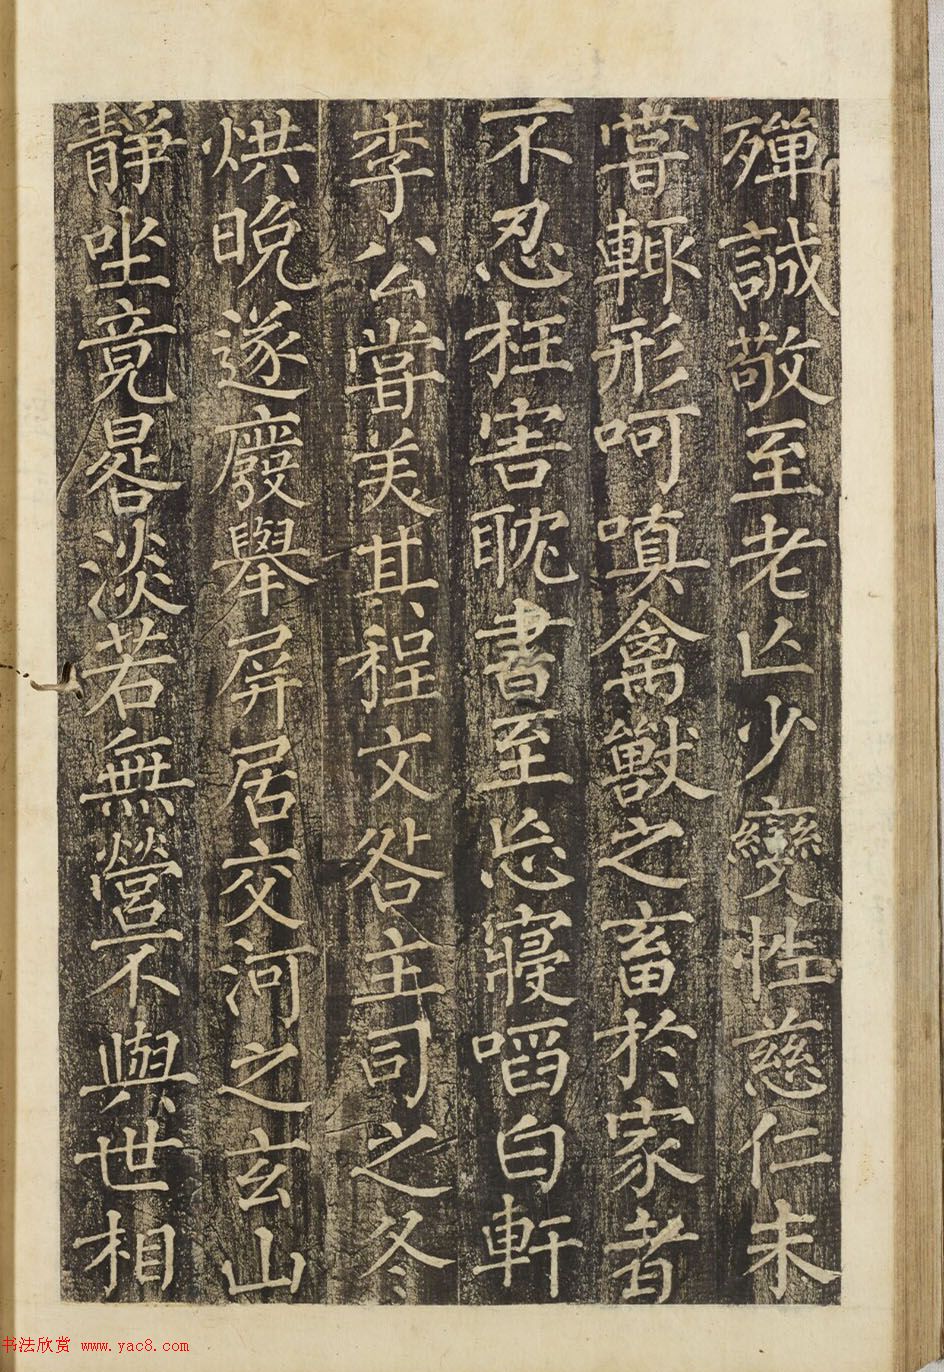 殫誠敬至老亾少變性慈仁未
嘗輒形呵嗔禽獸之畜於家者
不忍枉害耽書至忘寢㗖白軒
李公嘗美其程文咎主司之冬
烘晚遂廢舉屏居交河之玄山
靜坐竟晷淡若無營不與世相
书法欣赏 www.yac8.com